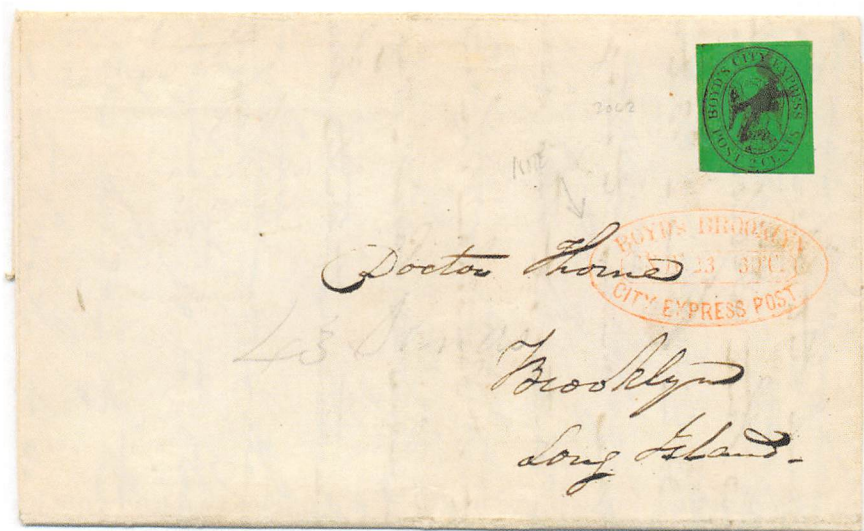 BOYD'S CITY EXPRESS
POST 2 CENTS
2002
BOYD'S BROOKLYN
23
CITY EXPRESS POST
Doctor Thorne
Brooklyn
Long Island.